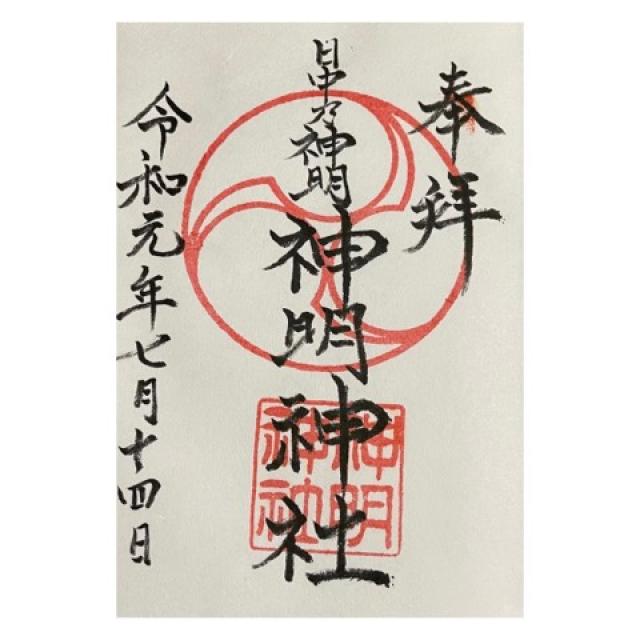 奉拝
日中乃神明
神明神社
神明
神社
令和元年七月十四日